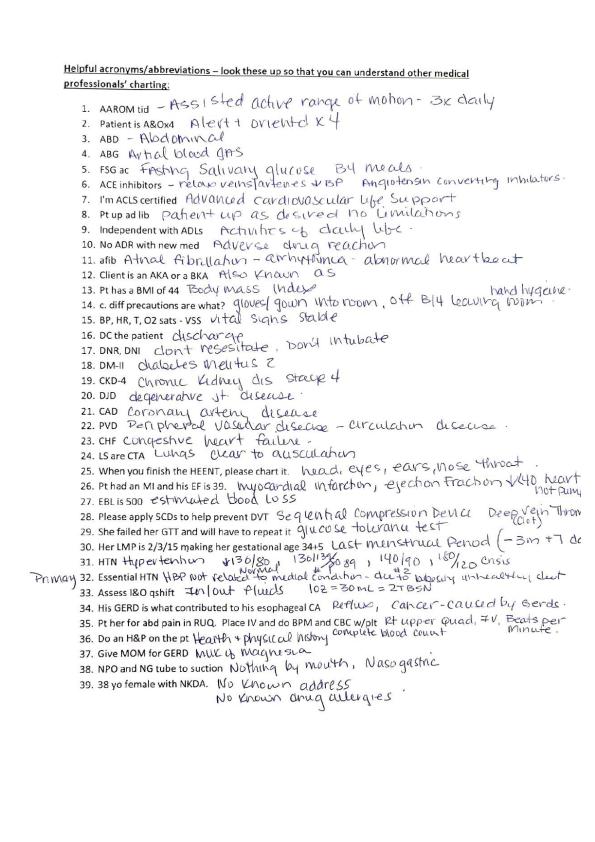 Helpful acronyms/abbreviations – look these up so that you can understand other medical
professionals' charting:
1. AAROM tid - Assisted active range of motion - 3x daily
2. Patient is A&Ox4 Alert + oriented x4
3. ABD - Abdominal
4. ABG Artial blood gas
5. FSG ac Fasting Salivary glucose B4 meals.
6. ACE inhibitors - relax veins/arteries ↓BP Angiotensin converting inhibitors.
7. I'm ACLS certified Advanced cardiovascular Life Support
8. Pt up ad lib patient up as desired no limitations
9. Independent with ADLs Activities of daily life.
10. No ADR with new med Adverse drug reaction
11. afib Atrial fibrillation - arrhythmia - abnormal heartbeat
12. Client is an AKA or a BKA Also known as
13. Pt has a BMI of 44 Body mass Index
hand hygeine.
14. c. diff precautions are what? gloves/gown into room, off B/4 leaving room
15. BP, HR, T, O2 sats - VSS vital signs stable
16. DC the patient discharge
17. DNR, DNI dont resesitate. Don't intubate
18. DM-II diabetes Melitus 2
19. CKD-4 Chronic Kidney dis stage 4
20. DJD degenerative jt disease.
21. CAD coronary artery disease
22. PVD Peripheral vascular disease - circulation disease.
23. CHF congestive heart failure.
24. LS are CTA Lungs clear to auscultation
25. When you finish the HEENT, please chart it. head, eyes, ears, nose throat.
26. Pt had an MI and his EF is 39. myocardial infarction, ejection fraction ↓40 heart
not pump
27. EBL is 500 estimated blood loss
28. Please apply SCDs to help prevent DVT Sequential Compression Device Deep Vein Throm
(Clot)
29. She failed her GTT and will have to repeat it glucose tolerance test
30. Her LMP is 2/3/15 making her gestational age 34+5 Last menstrual Period (-3m +7 d
31. HTN Hypertenhion ↓130/80, 130/139 80 89, 140/90, 180/120 Crisis
Normal #1 #2
Primary 32. Essential HTN HBP not related to medial condition - due to obesity unhealthy diet
33. Assess I&O qshift In/out fluids 1oz = 30mL = 2TBSN
34. His GERD is what contributed to his esophageal CA Reflux, cancer-caused by Gerds.
35. Pt her for abd pain in RUQ. Place IV and do BPM and CBC w/plt Rt upper quad, IV, Beats per
Minute.
complete blood count
36. Do an H&P on the pt Health + physical history
37. Give MOM for GERD Milk of magnesia
38. NPO and NG tube to suction Nothing by mouth, Nasogastric
39. 38 yo female with NKDA. No Known address
No known drug allergies.